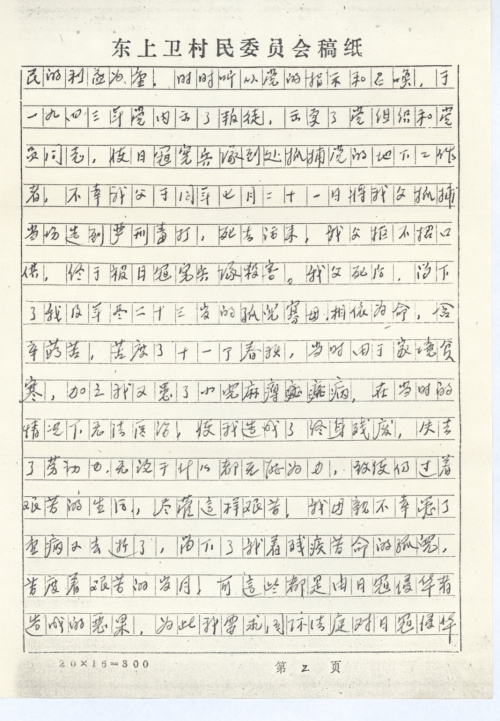 东上卫村民委员会稿纸
民的利益为重，时时听从党的指示和召唤，于
一九四三年党内出了叛徒，出卖了党组织和党
员同志，使日冠宪兵队到处抓捕党的地下工作
者，不幸我父于同年七月二十一日将我父抓捕
当场遭到严刑毒打，死去活来，我父拒不招口
供，终于被日冠宪兵队杀害。我父死后，留下
了我及年仅二十三岁的孤儿寡母，相依为命，含
辛茹苦，苦度了十一个春秋，当时由于家境贫
寒，加之我又患了小儿麻痹症疾病，在当时的
情况下无法医治，使我造成了终身残废，失去
了劳动力，无论干什么都无能为力，致使仍过着
艰苦的生活，尽管这样艰苦，我母亲不幸患了
重病又去逝了，留下了我着残疾苦命的孤儿，
苦度着艰苦的岁月，可这些都是由日冠侵华者
造成的恶果，为此我要求国际法庭对日冠侵华
20×15=300
第 2 页